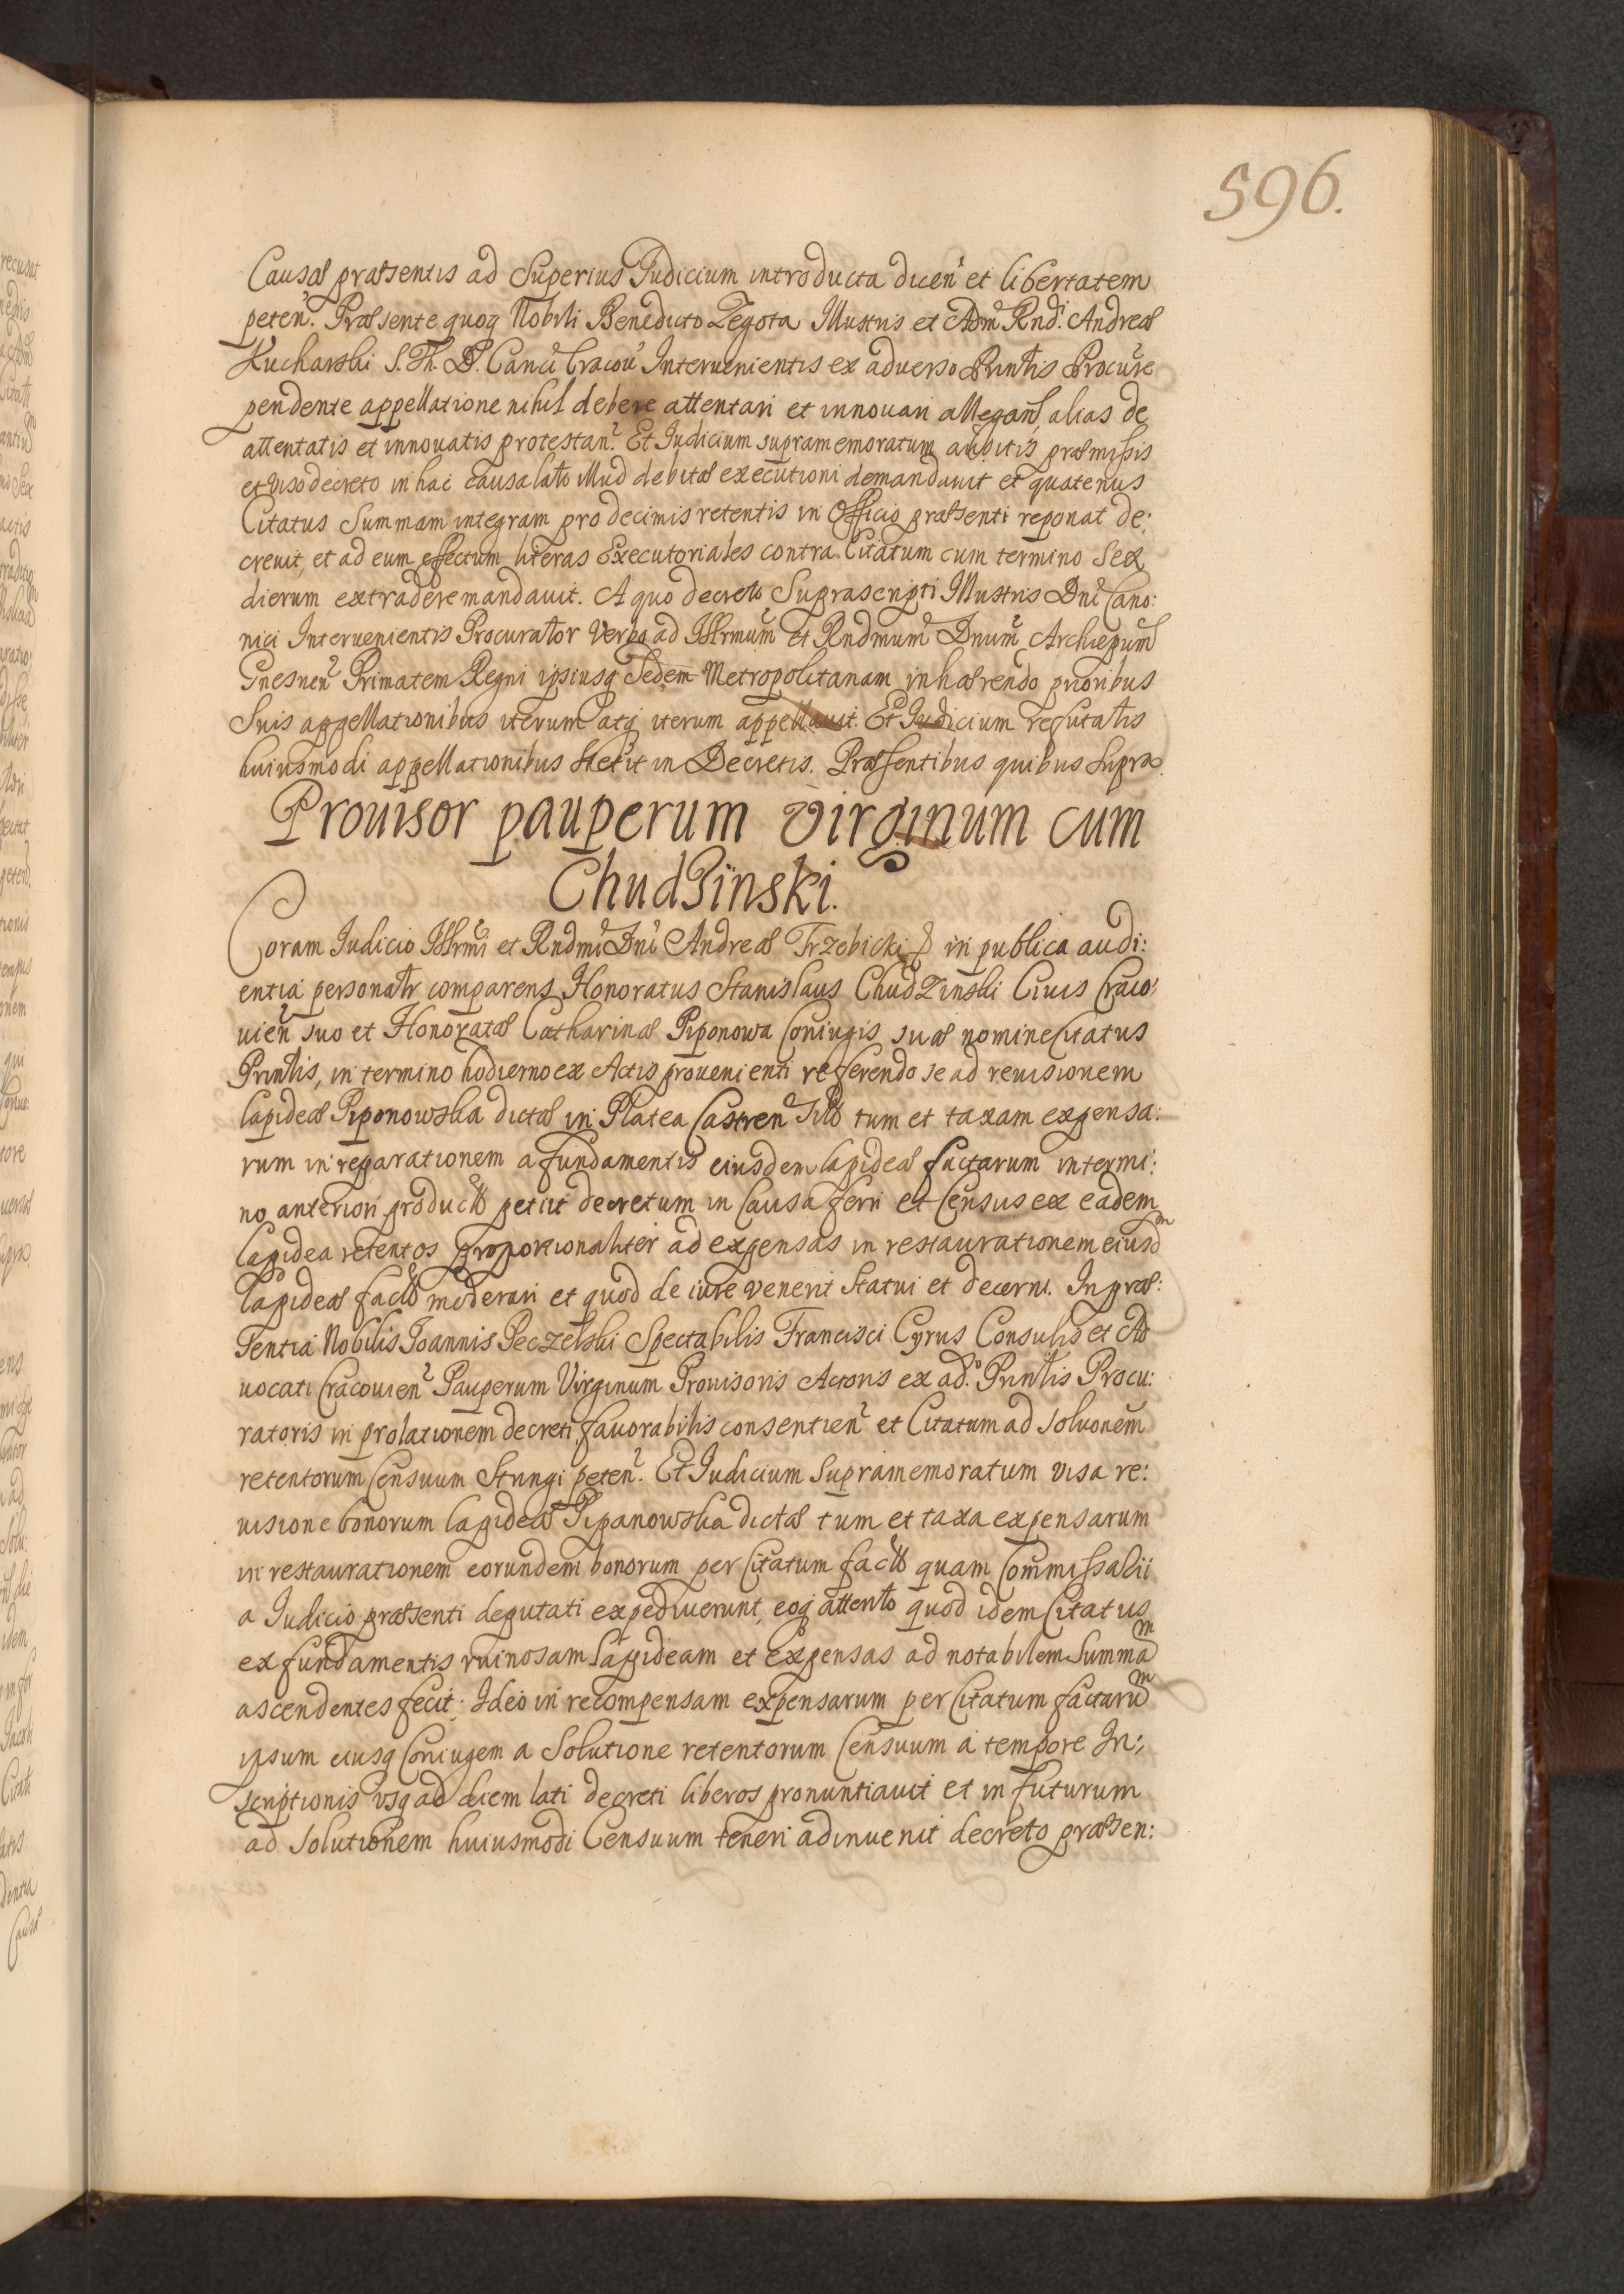 596.
Causæ præsentis ad Superius Iudicium introducta dicen et libertatem
peten. Præsente quoq Nobili Benedicto Zegota Illustris et Adm Rndi. Andreæ
Kucharski S. Th. D. Canci Cracou Interuenientis ex aduerso Prnlis Procure
pendente appellatione nihil debere attentari et innouari allegan, alias de
attentatis et innouatis protestan. Et Iudicium supramemoratum auditis præmissis
et viso decreto in hac causa lato illud debitæ executioni demandauit et quatenus
Citatus Summam integram pro decimis retentis in Officio præsenti reponat de:
creuit, et ad eum effectum literas Executoriales contra Citatum cum termino Sex
dierum extradere mandauit. A quo decreto Suprascripti Illustris Dni Cano:
nici Interuenientis Procurator Verbo ad Illrmum et Rndmum Dnum Archiepum
Gnesnen Primatem Regni ipsiusq Sedem Metropolitanam inhærendo prioribus
Suis appellationibus iterum atq iterum appellauit. Et Iudicium refutatis
huiusmodi appellationibus stetit in Decretis. Præsentibus quibus supra.
Prouisor pauperum Virginum cum
Chudziński.
Coram Iudicio Illrmi et Rndmi Dni Andreæ Trzebicki in publica audi:
entia personalr comparens Honoratus Stanislaus Chudzinski Ciuis Craco:
uien suo et Honoratæ Catharinæ Piponowa Coniugis suæ nomine Citatus
Prnlis, in termino hodierno ex Actis prouenienti referendo se ad reuisionem
lapideæ Piponowska dictæ in Platea Castren sitæ tum et taxam expensa:
rum in reparationem a fundamentis eiusdem lapideæ factarum in termi:
no anteriori product petiit decretum in Causa ferri et Census ex eadem
Lapidea retentos proportionaliter ad expensas in restaurationem eiusdm
lapideæ fact moderari et quod de iure venerit Statui et decerni. In præ:
sentia Nobilis Ioannis Peczelski Spectabilis Francisci Cyrus Consulis et Ad
uocati Cracouien Pauperum Virginum Prouisoris Actoris ex ad. Prnlis Procu:
ratoris in prolationem decreti fauorabilis consentien et Citatum ad soluonem
retentorum Censuum Stringi peten. Et Iudicium Supramemoratum visa re:
uisione bonorum lapideæ Pipanowska dictæ tum et taxa expensarum
in restaurationem eorundem bonorum per Citatum fact quam Commissarii
a Iudicio præsenti deputati expediuerunt, eoq attento quod idem Citatus
ex fundamentis ruinosam lapideam et expensas ad notabilem Summam
ascendentes fecit. Ideo in recompensam expensarum per Citatum factarum
ipsum eiusq Coniugem a Solutione retentorum Censuum a tempore In:
scriptionis vsq ad diem lati decreti liberos pronuntiauit et in futurum
ad solutionem huiusmodi Censuum teneri adinuenit decreto præsen: